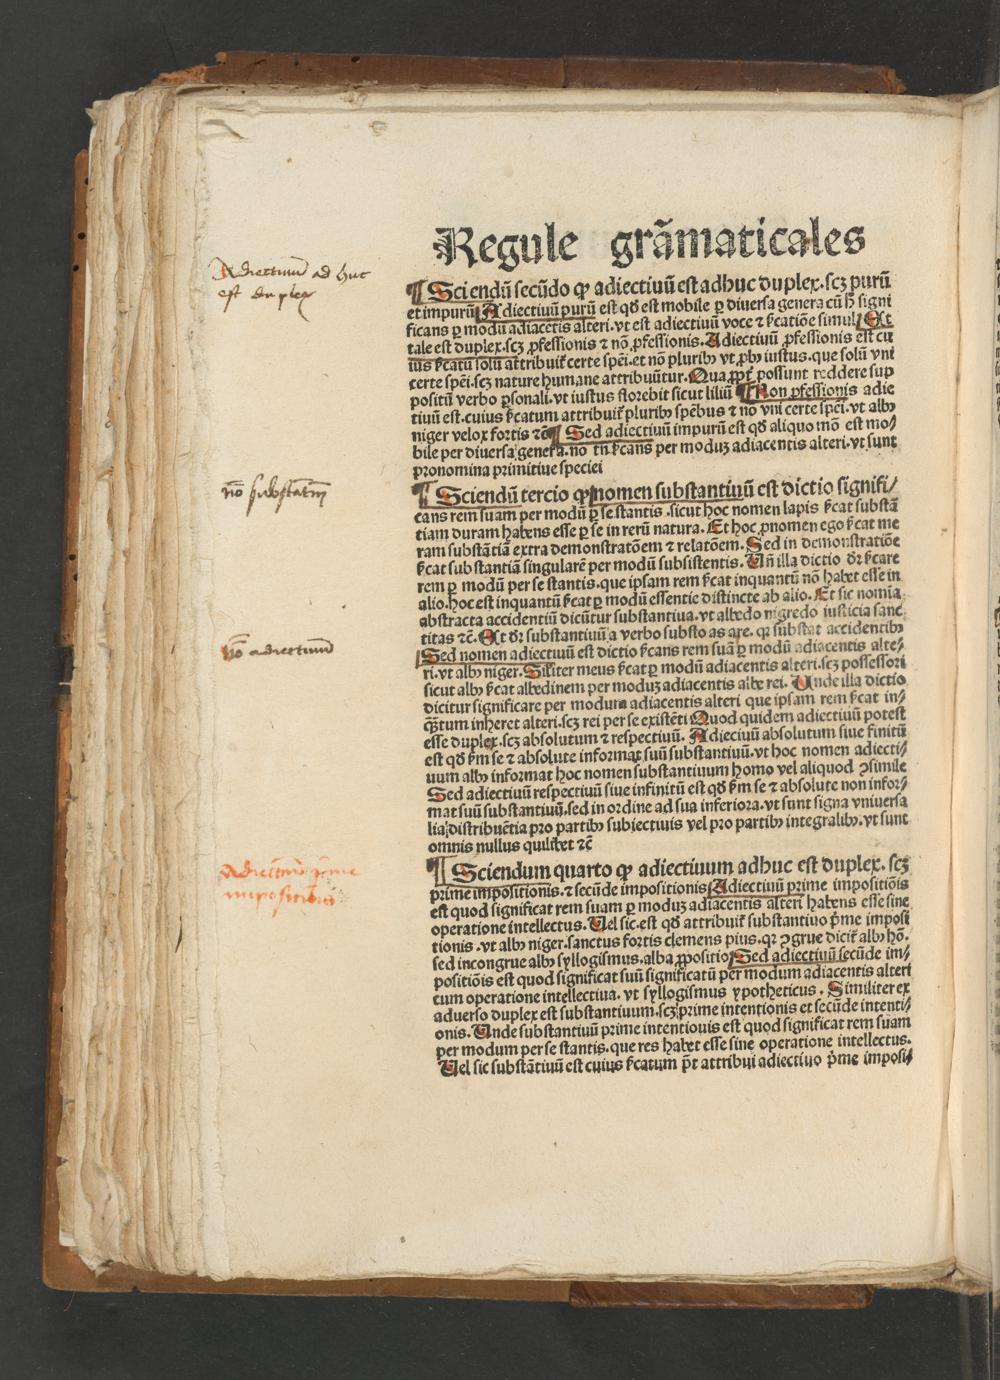 Regule grãmaticales
Adiectiuũ ad huc
est duplex
¶ Sciendũ secũdo ꝙ adiectiuũ est adhuc duplex.scꝫ purũ
et impurũ Adiectiuũ purũ est qđ est mobile ꝑ diuersa genera cũ h̃ signi
ficans ꝑ modũ adiacẽtis alteri.vt est adiectiuũ voce ⁊ ẜcatiõe simul Et
tale est duplex.scꝫ ꝓfessionis ⁊ nõ ꝓfessionis. Adiectiuũ ꝓfessionis est cu
ius ẜcatũ solũ attribuit᷑ certe spẽi.et nõ pluribꝰ vt ꝓbꝰ iustus.que solũ vni
certe spẽi.scꝫ nature humane attribuũtur. Quaꝓpt̃ possunt reddere sup
positũ verbo ꝑsonali.vt iustus florebit sicut liliũ ¶ Non ꝓfessionis adie
tiuũ est.cuius ẜcatum attribuit᷑ pluribꝰ spẽbus ⁊ nõ vni certe spẽi.vt albꝰ
niger velox fortis ⁊c̃ ¶ Sed adiectiuũ impurũ est qđ aliquo mõ est mo⸗
bile per diuersa genera.nõ tñ ẜcans per moduꝫ adiacentis alteri.vt sunt
pronomina primitiue speciei
nõ substãtiuũ
¶ Sciendũ tercio ꝙ nomen substantiuũ est dictio signifi⸗
cans rem suam per modũ ꝑ se stantis.sicut hoc nomen lapis ẜcat substã
tiam duram habens esse ꝑ se in rerũ natura. Et hoc ꝓnomen ego ẜcat me
ram substãtiã extra demonstratõem ⁊ relatõem. Sed in demonstratiõe
ẜcat substantiã singularẽ per modũ subsistentis. Vñ illa dictio dr̃ ẜcare
rem ꝑ modũ per se stantis.que ipsam rem ẜcat inquantũ nõ habet esse in
alio.hoc est inquantũ ẜcat ꝑ modũ essentie distincte ab alio. Et sic nomina
abstracta accidentiũ dicũtur substantiua.vt albedo nigredo iusticia sanc
titas ⁊c̃. Et dr̃ substantiuũ a verbo substo as are. qꝛ substat accidentibꝰ
nõ adiectiuum
Sed nomen adiectiuũ est dictio ẜcans rem suã ꝑ modũ adiacentis alte⸗
ri.vt albꝰ niger. Silĩter meus ẜcat ꝑ modũ adiacentis alteri.scꝫ possessori
sicut albꝰ ẜcat albedinem per moduꝫ adiacentis albe rei. Unde illa dictio
dicitur significare per modum adiacentis alteri que ipsam rem ẜcat in⸗
q̃ꝫtum inheret alteri.scꝫ rei per se existẽti Quod quidem adiectiuũ potest
esse duplex.scꝫ absolutum ⁊ respectiuũ. Adieciuũ absolutum siue finitũ
est qđ ẜm se ⁊ absolute informat suũ substantiuũ.vt hoc nomen adiecti⸗
uum albꝰ informat hoc nomen substantiuum homo vel aliquod ↄsimile
Sed adiectiuũ respectiuũ siue infinitũ est qđ ẜm se ⁊ absolute non infor⸗
mat suũ substantiuũ.sed in ordine ad sua inferiora.vt sunt signa vniuersa
lia distribuẽtia pro partibꝰ subiectiuis vel pro partibꝰ integralibꝰ.vt sunt
omnis nullus quilibet ⁊c̃
Adiectiuũ prime
impositionis
¶ Sciendum quarto ꝙ adiectiuum adhuc est duplex. scꝫ
prime impositionis.⁊ secũde impositionis Adiectiuũ prime impositiõis
est quod significat rem suam ꝑ moduꝫ adiacentis alteri habens esse sine
operatione intellectus. Uel sic.est qđ attribuit᷑ substantiuo p̃me imposi
tionis.vt albꝰ niger.sanctus fortis clemens pius.qꝛ ↄgrue dicit᷑ albꝰ hõ.
sed incongrue albꝰ syllogismus.alba ꝓpositio Sed adiectiuũ secũde im⸗
positiõis est quod significat suũ significatũ per modum adiacentis alteri
cum operatione intellectiua. vt syllogismus ypotheticus. Similiter ex
aduerso duplex est substantiuum.scꝫ prime intentionis et secũde intenti⸗
onis. Unde substantiuũ prime intentiouis est quod significat rem suam
per modum per se stantis.que res habet esse sine operatione intellectus.
Uel sic substãtiuũ est cuius ẜcatum p̃t attribui adiectiuo p̃me imposi⸗